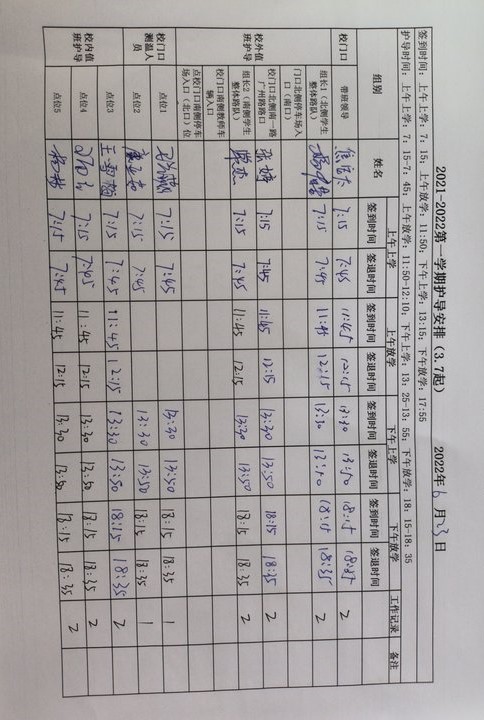 2021-2022第一学期护导安排（3.7起） 2022年6月23日
签到时间：上午上学：7：15；上午放学：11:50；下午上学：13:15；下午放学：17:55
护导时间：上午上学：7：15-7：45；上午放学：11:50-12:10；下午上学：13：25-13：55；下午放学：18：15-18：35
组别 姓名 上午上学 上午放学 下午上学 下午放学 工作记录 备注
签到时间 签退时间 签到时间 签退时间 签到时间 签退时间 签到时间 签退时间
校门口 带班领导 7:15 7:45 11:45 12:15 13:30 13:50 18:15 18:35 2
校外值班护导
组长1（北侧学生整体路队） 7:15 7:45 11:45 12:15 13:30 13:50 18:15 18:35 2
门口北侧停车场入口（南口）
校门口北侧南一路广州路路口 张婷 7:15 7:45 11:45 12:15 13:30 13:50 18:15 18:35 2
组长2（南侧学生整体路队） 7:15 7:45 11:45 12:15 13:30 13:50 18:15 18:35 2
校门口南侧教师车辆入口
点校门口南侧停车场入口（北口）位
校门口测温人员
点位1 7:15 7:45 13:30 13:50 18:15 18:35 1
点位2 7:15 7:45 13:30 13:50 18:15 18:35 1
校内值班护导
点位3 7:15 7:45 11:45 12:15 13:30 13:50 18:15 18:35 2
点位4 7:15 7:45 11:45 12:15 13:30 13:50 18:15 18:35 2
点位5 7:15 7:45 11:45 12:15 13:30 13:50 18:15 18:35 2